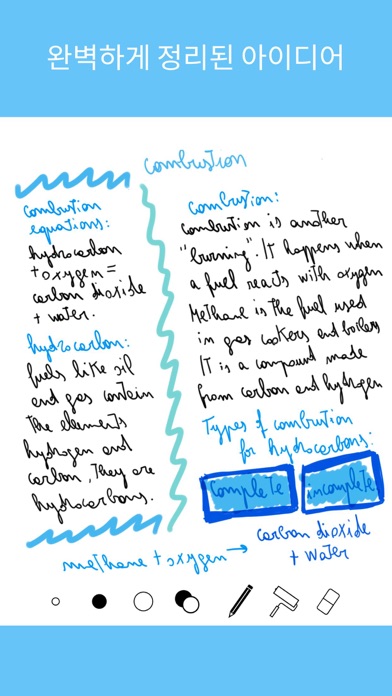 완벽하게 정리된 아이디어
combustion
combustion
equations:
hydrocarbon
+ oxygen =
carbon dioxide
+ water.
hydrocarbon:
fuels like oil
and gas contain
the elements
hydrogen and
carbon, they are
hydrocarbons.
combustion:
combustion is another
"burning". It happens when
a fuel reacts with oxygen
Methane is the fuel used
in gas cookers and boilers
IT is a compound made
from carbon and hydrogen
Types of combustion
for hydrocarbons:
complete
incomplete
methane + oxygen →
carbon dioxide
+ water